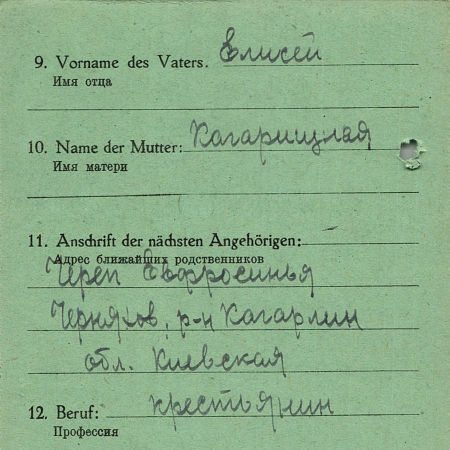 9. Vorname des Vaters. Елисей
Имя отца
10. Name der Mutter: Кагарицлая
Имя матери
11. Anschrift der nächsten Angehörigen:
Адрес ближайших родственников
Череп Евфросинья
Черняхов, р-н Кагарлин
обл. Киевская
12. Beruf: крестьянин
Профессия